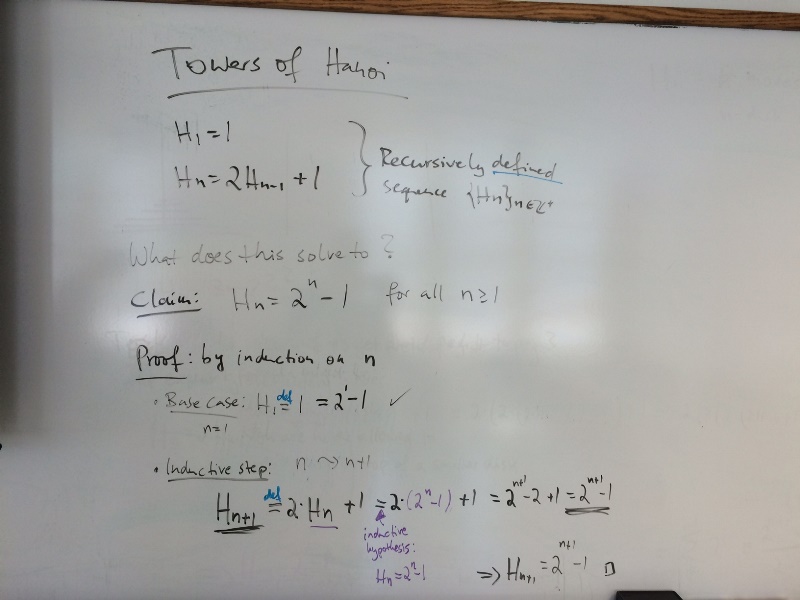 Towers of Hanoi
H₁ = 1
Hₙ = 2Hₙ₋₁ + 1
} Recursively defined
sequence {Hₙ}ₙ∈ℤ⁺
What does this solve to?
Claim: Hₙ = 2ⁿ - 1 for all n ≥ 1
Proof: by induction on n
• Base case: H₁ =(def) 1 = 2¹ - 1 ✓
n=1
• Inductive step: n ⤳ n+1
Hₙ₊₁ =(def) 2·Hₙ + 1 = 2·(2ⁿ-1) + 1 = 2ⁿ⁺¹ - 2 + 1 = 2ⁿ⁺¹ - 1
inductive
hypothesis:
Hₙ = 2ⁿ - 1
⇒ Hₙ₊₁ = 2ⁿ⁺¹ - 1 □